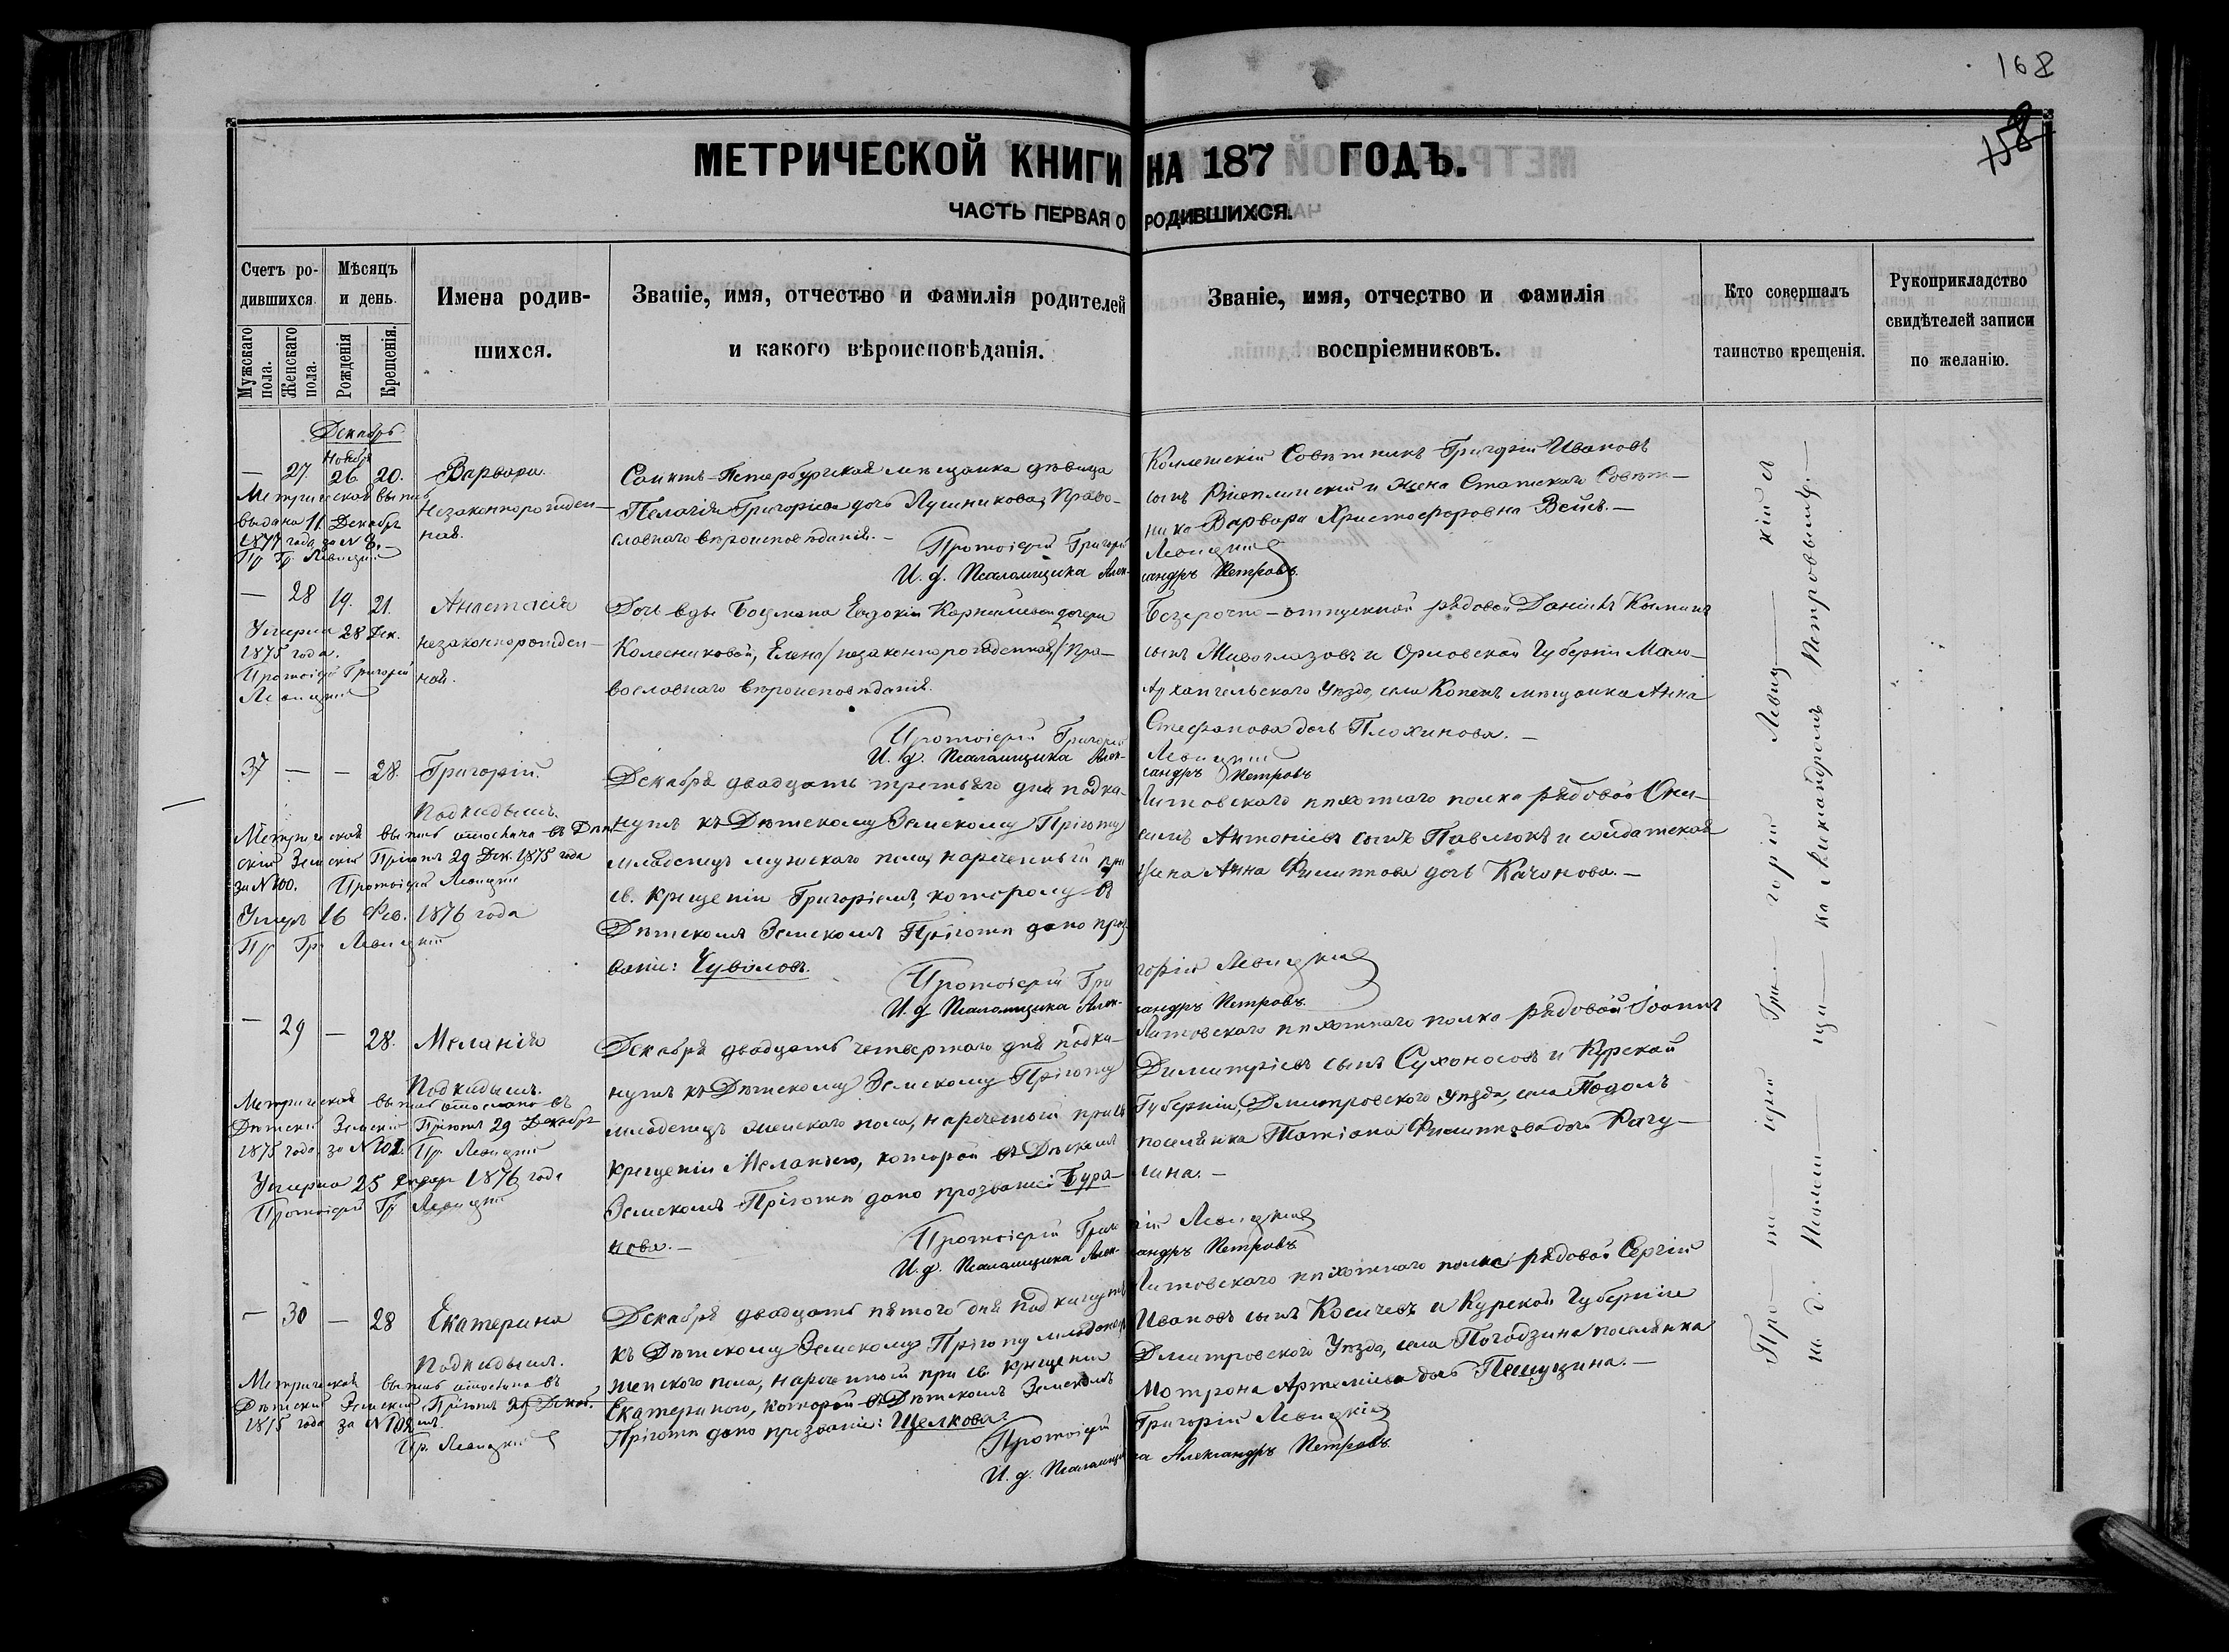 168
158
МЕТРИЧЕСКОЙ КНИГИ НА 187 ГОДЪ.
ЧАСТЬ ПЕРВАЯ О РОДИВШИХСЯ.
Счетъ ро-
дившихся.
Мужскаго пола.
Женскаго пола.
Мѣсяцъ
и день.
Рожденія
Крещенія.
Имена родив-
шихся.
Званіе, имя, отчество и фамилія родителей
и какого вѣроисповѣданія.
Званіе, имя, отчество и фамилія
воспріемниковъ.
Кто совершалъ
таинство крещенія.
Рукоприкладство
свидѣтелей записи
по желанію.
Декабрь
Ноября
— 27. 26 20.
Варвара.
Незаконнорожден-
ная.
Метрической выпись
выдана 11 Декабря
1877 года за № 8.
Пр. Гр. Левицкій
Санктъ-Петербургская мѣщанка дѣвица
Пелагія Григоріева дочь Лушникова, право-
славнаго вѣроисповѣданія.
Протоіерей Григорій Левицкій
И. д. Псаломщика Александръ Петровъ.
Коллежскій Совѣтникъ Григорій Ивановъ
сынъ и жена Статскаго Совѣт-
ника Варвара Христофоровна Вейсъ.
— 28 19. 21.
Анастасія
незаконнорожден-
ная.
Умерла 28 Дек.
1875 года.
Протоіерей Григорій
Левицкій
Дочь вды Боцмана Евдокіи Корниліевой дочери
Колесниковой, Елена /незаконнорожденная/ пра-
вославнаго вѣроисповѣданія.
Протоіерей Григорій Левицкій
И. д. Псаломщика Александръ Петровъ
Безсрочно-отпускной рядовой Даніилъ
сынъ Миволазовъ и Орловской Губерніи Мало-
Архангельскаго Уѣзда, села мѣщанка Анна
Стефанова дочь Плохинова.
37 — — 28.
Григорій.
Подкидышъ.
Метрической выпись отослана въ Дѣт-
скій Земскій Пріютъ 29 Дек. 1875 года
за № 100. Протоіерей Левицкій
Умеръ 16 Фев. 1876 года
Пр. Гр. Левицкій
Декабря двадцать третьяго дня подки-
нутъ къ Дѣтскому Земскому Пріюту
младенецъ мужскаго пола, нареченный при
св. крещеніи Григоріемъ, которому въ
Дѣтскомъ Земскомъ Пріютѣ дано проз-
ваніе: Чуваловъ.
Протоіерей Григорій Левицкій
И. д. Псаломщика Александръ Петровъ.
Литовскаго пѣхотнаго полка рядовой
Антоніевъ сынъ Павлюкъ и солдатская
жена Анна Филиппова дочь Качанова.
— 29 — 28.
Меланія
Подкидышъ.
Метрической выпись отослана въ
Дѣтскій Земскій Пріютъ 29 Декабря
1875 года за № 101. Пр. Левицкій
Умерла 25 1876 года
Протоіерей Гр. Левицкій
Декабря двадцать четвертаго дня подки-
нутъ къ Дѣтскому Земскому Пріюту
младенецъ женскаго пола, нареченный при св.
крещеніи Меланіею, которой въ Дѣтскомъ
Земскомъ Пріютѣ дано прозваніе: Бура-
кова.
Протоіерей Григорій Левицкій
И. д. Псаломщика Александръ Петровъ
Литовскаго пѣхотнаго полка рядовой Іоаннъ
Димитріевъ сынъ Сухоносовъ и Курской
Губерніи, Дмитровскаго уѣзда, села Подолъ
поселянка Татіана Филиппова дочь Рагу-
лина.
— 30 — 28
Екатерина
Подкидышъ.
Метрической выпись отослана въ
Дѣтскій Земскій Пріютъ 29 Декаб.
1875 года за № 102.
Пр. Левицкій
Декабря двадцать пятаго дня подкинутъ
къ Дѣтскому Земскому Пріюту младенецъ
женскаго пола, нареченный при св. крещеніи
Екатериною, которой въ Дѣтскомъ Земскомъ
Пріютѣ дано прозваніе: Щелкова.
Протоіерей Григорій Левицкій
И. д. Псаломщика Александръ Петровъ.
Литовскаго пѣхотнаго полка рядовой Сергій
Ивановъ сынъ Косичевъ и Курской Губерніи
Дмитровскаго Уѣзда, села Погодзина поселянка
Мотрона Артеміева дочь Пешущина.
Протоіерей Григорій Левицкій
на д. Псаломщика Александромъ Петровымъ.